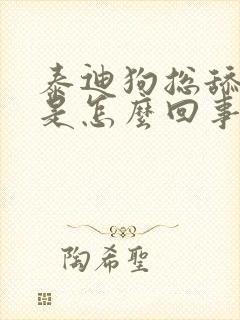 泰迪狗总舔
是怎麼回事
陶希聖